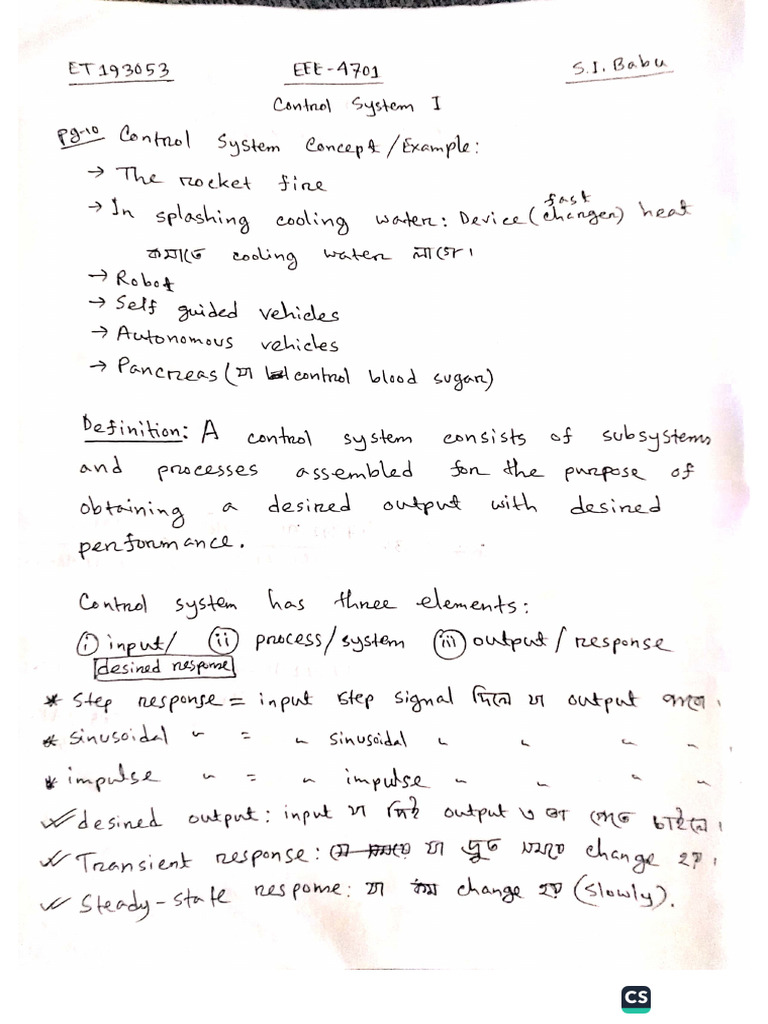 ET193053 EEE-4701 S.I. Babu
Control System I
Pg-10 Control System Concept/Example:
→ The rocket fire
→ In splashing cooling water: Device (fast changer) heat
কমাতে cooling water লাগে।
→ Robot
→ Self guided vehicles
→ Autonomous vehicles
→ Pancreas (যা control blood sugar)
Definition: A control system consists of subsystems
and processes assembled for the purpose of
obtaining a desired output with desired
performance.
Control system has three elements:
(i) input/ (ii) process/system (iii) output/response
desired response
* Step response = input step signal দিলে যা output পাবো।
* sinusoidal " = " sinusoidal " " " "
* impulse " = " impulse " " " "
✓ desired output: input যা দিই output ও তা পেতে চাইলে।
✓ Transient response: যা দ্রুত সময়ে change হয়।
✓ Steady-state response: যা change হয় (slowly).
CS